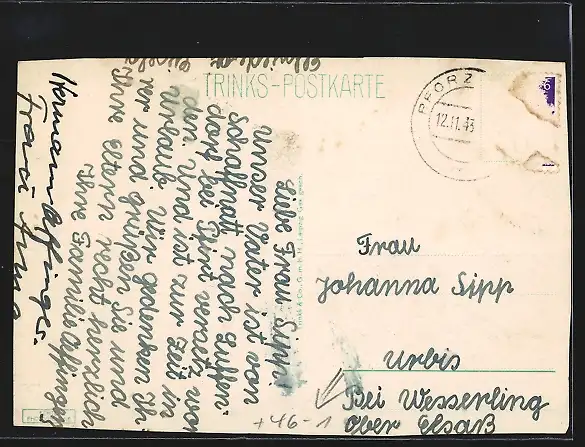 TRINKS-POSTKARTE
PFORZ
12.11.43
Liebe Frau Sipp!
Unser Vater ist von
Schaffnatt nach Luffen-
dorf bei Pfirt versetzt wor
den und ist zur Zeit in
Urlaub. Wir gedenken Ih
rer und grüßen Sie und
Ihre Eltern recht herzlich
Ihre Familie Effinger
Hermann Effinger.
Frau
Trinks & Co. G.m.b.H., Leipzig
Frau
Johanna Sipp
Urbis
Bei Wesserling
Ober Elsaß
+46-1